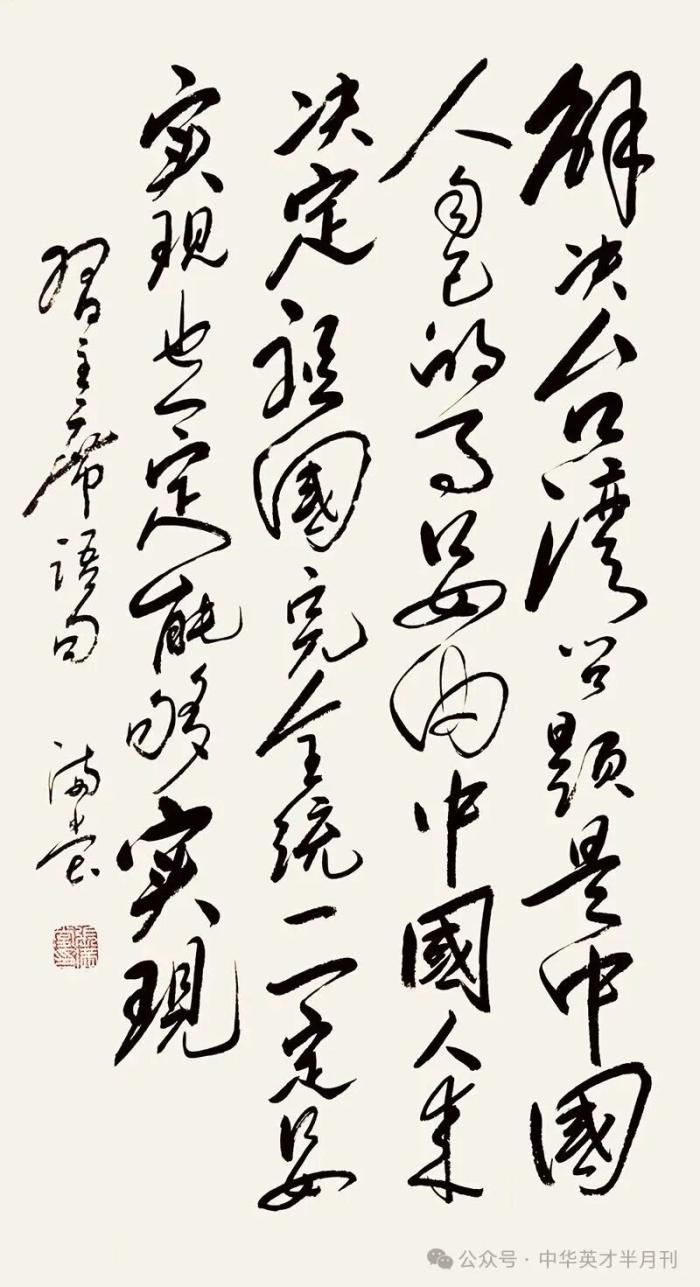 解决台湾问题是中國
人自己的事要由中國人来
决定祖國完全统一一定要
实現也一定能够
实現
習主席语句 满堂
公众号·中华英才半月刊